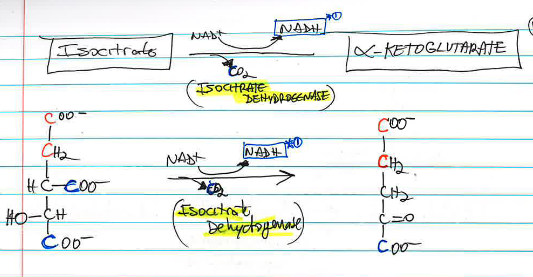 NAD+ NADH *①
Isocitrate α-KETOGLUTARATE
CO₂
(ISOCITRATE
DEHYDROGENASE)
COO⁻ COO⁻
CH₂ NAD+ NADH *① CH₂
HC-COO⁻ CO₂ CH₂
HO-CH (Isocitrate C=O
Dehydrogenase)
COO⁻ COO⁻